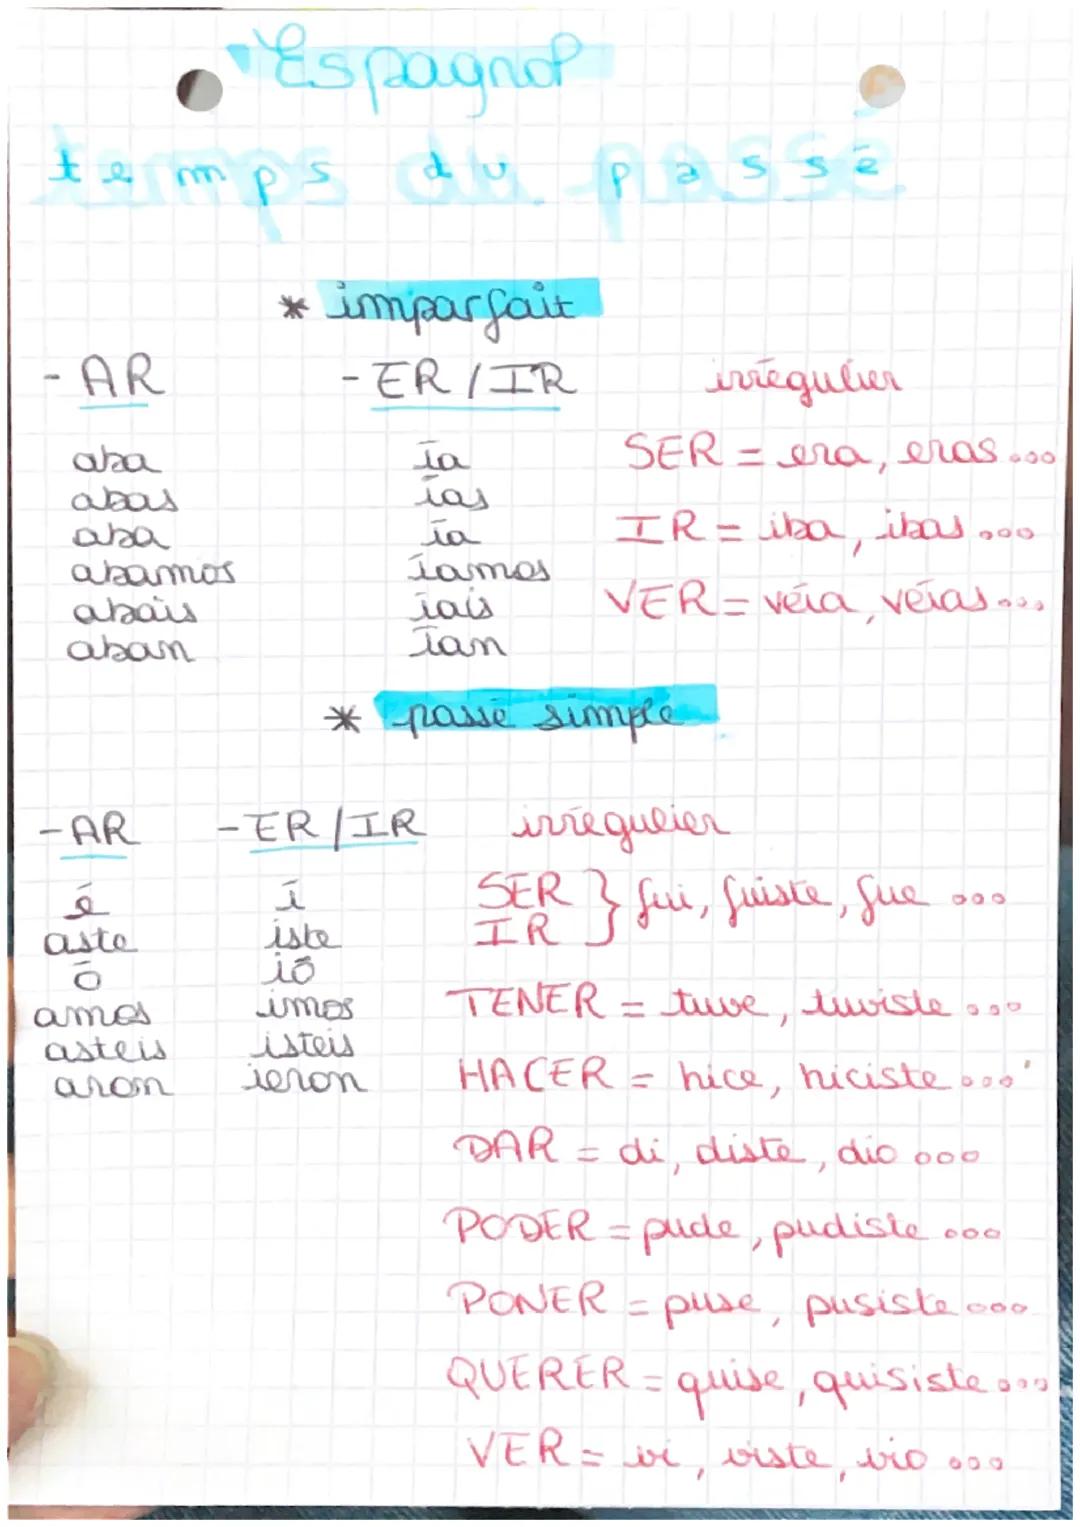 Espagnol
temps du passé
* imparfait
- AR - ER / IR irrégulier
aba ía SER = era, eras...
abas ías
aba ía IR = iba, ibas...
abamos íamos
abais íais VER = veía, veías...
aban ían
* passé simple
- AR - ER / IR irrégulier
é í SER } fui, fuiste, fue ...
aste iste IR
ó ió
amos imos TENER = tuve, tuviste ...
asteis isteis
aron ieron HACER = hice, hiciste ...
DAR = di, diste, dio ...
PODER = pude, pudiste ...
PONER = puse, pusiste ...
QUERER = quise, quisiste ...
VER = vi, viste, vio ...